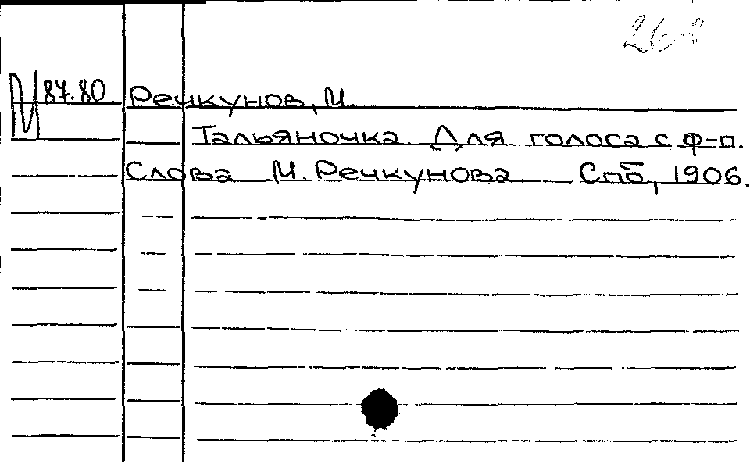 М 87.80 Речкунов, М.
Тальяночка. Для голоса с ф-п.
Слова М. Речкунова Спб, 1906.